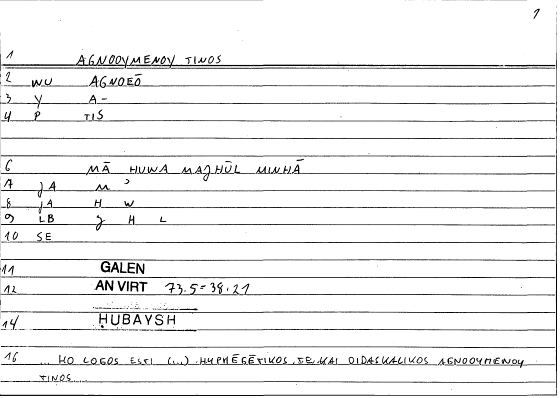 1
1 AGNOOYMENOY TINOS
2 WU AGNOEŌ
3 Y A-
4 P TIS
6 MĀ HUWA MAJHŪL MINHĀ
7 JA M ʾ
8 JA H W
9 LB J H L
10 SE
11 GALEN
12 AN VIRT 73.5=38.21
14 ḤUBAYSH
16 ... HO LOGOS ESTI (...) HYPHĒGĒTIKOS TE KAI DIDASKALIKOS AGNOOYMENOY
TINOS...